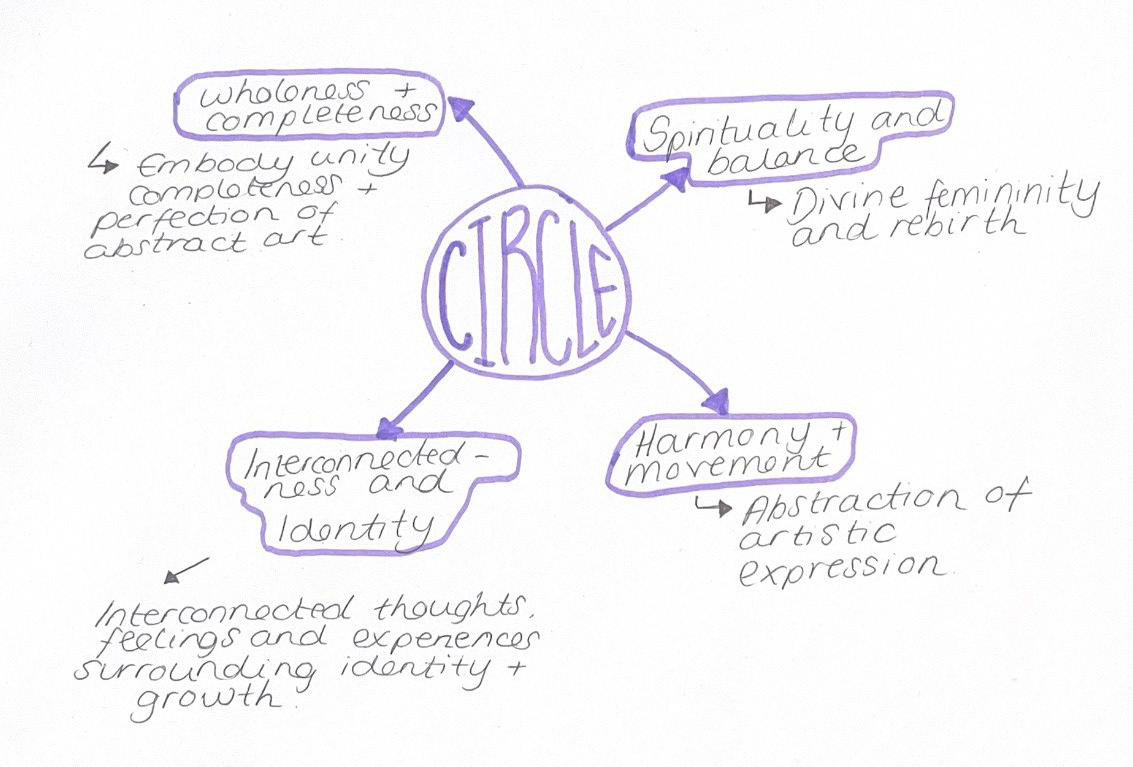 wholeness +
completeness
Embody unity
completeness +
perfection of
abstract art.
Spirituality and
balance
Divine femininity
and rebirth
CIRCLE
Interconnected-
ness and
Identity
Interconnected thoughts,
feelings and experiences
surrounding identity +
growth.
Harmony +
movement
Abstraction of
artistic
expression.